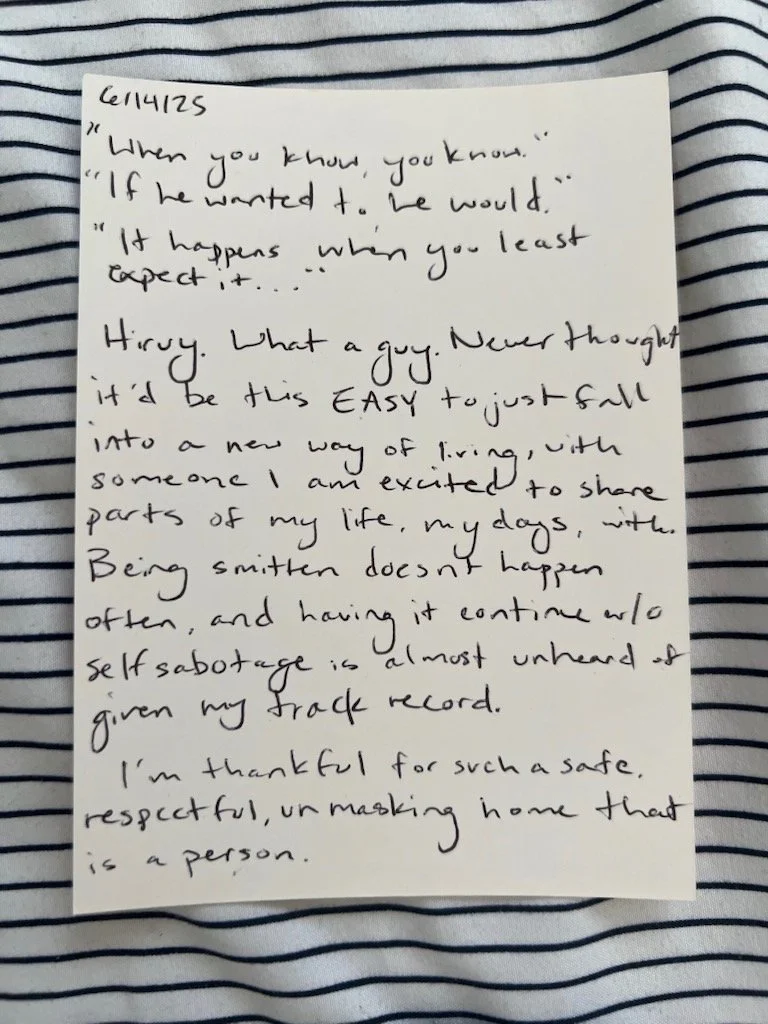 6/14/25
"When you know, you know."
"If he wanted to he would."
"It happens when you least
expect it..."
Hirvy. What a guy. Never thought
it'd be this EASY to just fall
into a new way of living, with
someone I am excited to share
parts of my life, my days, with.
Being smitten doesn't happen
often, and having it continue w/o
self sabotage is almost unheard of
given my track record.
I'm thankful for such a safe,
respectful, unmasking home that
is a person.